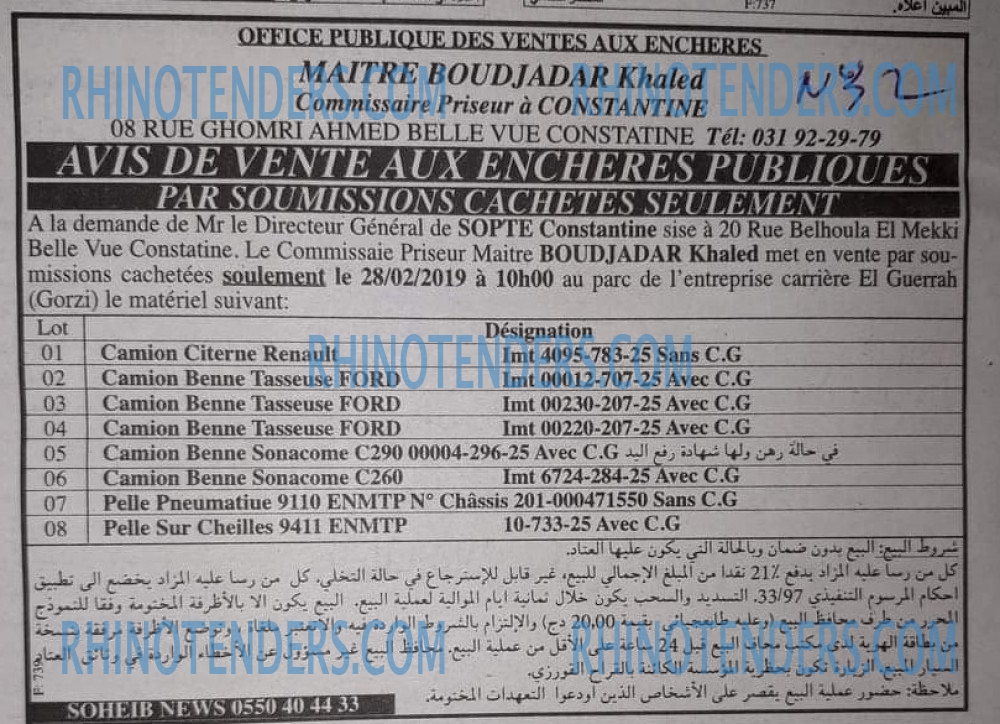 المبين أعلاه.
F:737
OFFICE PUBLIQUE DES VENTES AUX ENCHERES
MAITRE BOUDJADAR Khaled
Commissaire Priseur à CONSTANTINE
08 RUE GHOMRI AHMED BELLE VUE CONSTATINE Tél: 031 92-29-79
AVIS DE VENTE AUX ENCHERES PUBLIQUES
PAR SOUMISSIONS CACHETES SEULEMENT
A la demande de Mr le Directeur Général de SOPTE Constantine sise à 20 Rue Belhoula El Mekki
Belle Vue Constatine. Le Commissaie Priseur Maitre BOUDJADAR Khaled met en vente par sou-
missions cachetées soulement le 28/02/2019 à 10h00 au parc de l'entreprise carrière El Guerrah
(Gorzi) le matériel suivant:
Lot Désignation
01 Camion Citerne Renault Imt 4095-783-25 Sans C.G
02 Camion Benne Tasseuse FORD Imt 00012-707-25 Avec C.G
03 Camion Benne Tasseuse FORD Imt 00230-207-25 Avec C.G
04 Camion Benne Tasseuse FORD Imt 00220-207-25 Avec C.G
05 Camion Benne Sonacome C290 00004-296-25 Avec C.G في حالة رهن ولها شهادة رفع اليد
06 Camion Benne Sonacome C260 Imt 6724-284-25 Avec C.G
07 Pelle Pneumatiue 9110 ENMTP N° Châssis 201-000471550 Sans C.G
08 Pelle Sur Cheilles 9411 ENMTP 10-733-25 Avec C.G
شروط البيع: البيع بدون ضمان وبالحالة التي يكون عليها العتاد.
كل من رسا عليه المزاد يدفع 21٪ نقدا من المبلغ الاجمالي للبيع، غير قابل للإسترجاع في حالة التخلي. كل من رسا عليه المزاد يخضع الى تطبيق
احكام المرسوم التنفيذي 33/97. التسديد والسحب يكون خلال ثمانية ايام الموالية لعملية البيع. البيع يكون الا بالأظرفة المختومة وفقا للنموذج
المحرر من طرف محافظ البيع (وعليه طابع جبائي بقيمة 20,00 دج) والإلتزام بالشروط الواردة فيه وتوضع الأظرفة مرفقة بنسخة
من بطاقة الهوية لدى مكتب محاف البيع قبل 24 ساعة على الأقل من عملية البيع. محافظ البيع غير مسؤول عن الأخطاء الواردة في وثائق العتاد
السيار المبيع. الزيارة تكون بحظيرة المؤسسة الكائنة بالقراح القورزي.
ملاحظة: حضور عملية البيع يقصر على الأشخاص الذين أودعوا التعهدات المختومة.
F: 739
SOHEIB NEWS 0550 40 44 33
RHINOTENDERS.COM
RHINOTENDERS.COM
RHINOTENDERS.COM
RHINOTENDERS.COM
RHINOTENDERS.COM